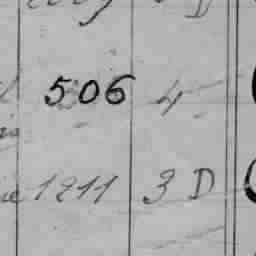 506 4
1211 3 D